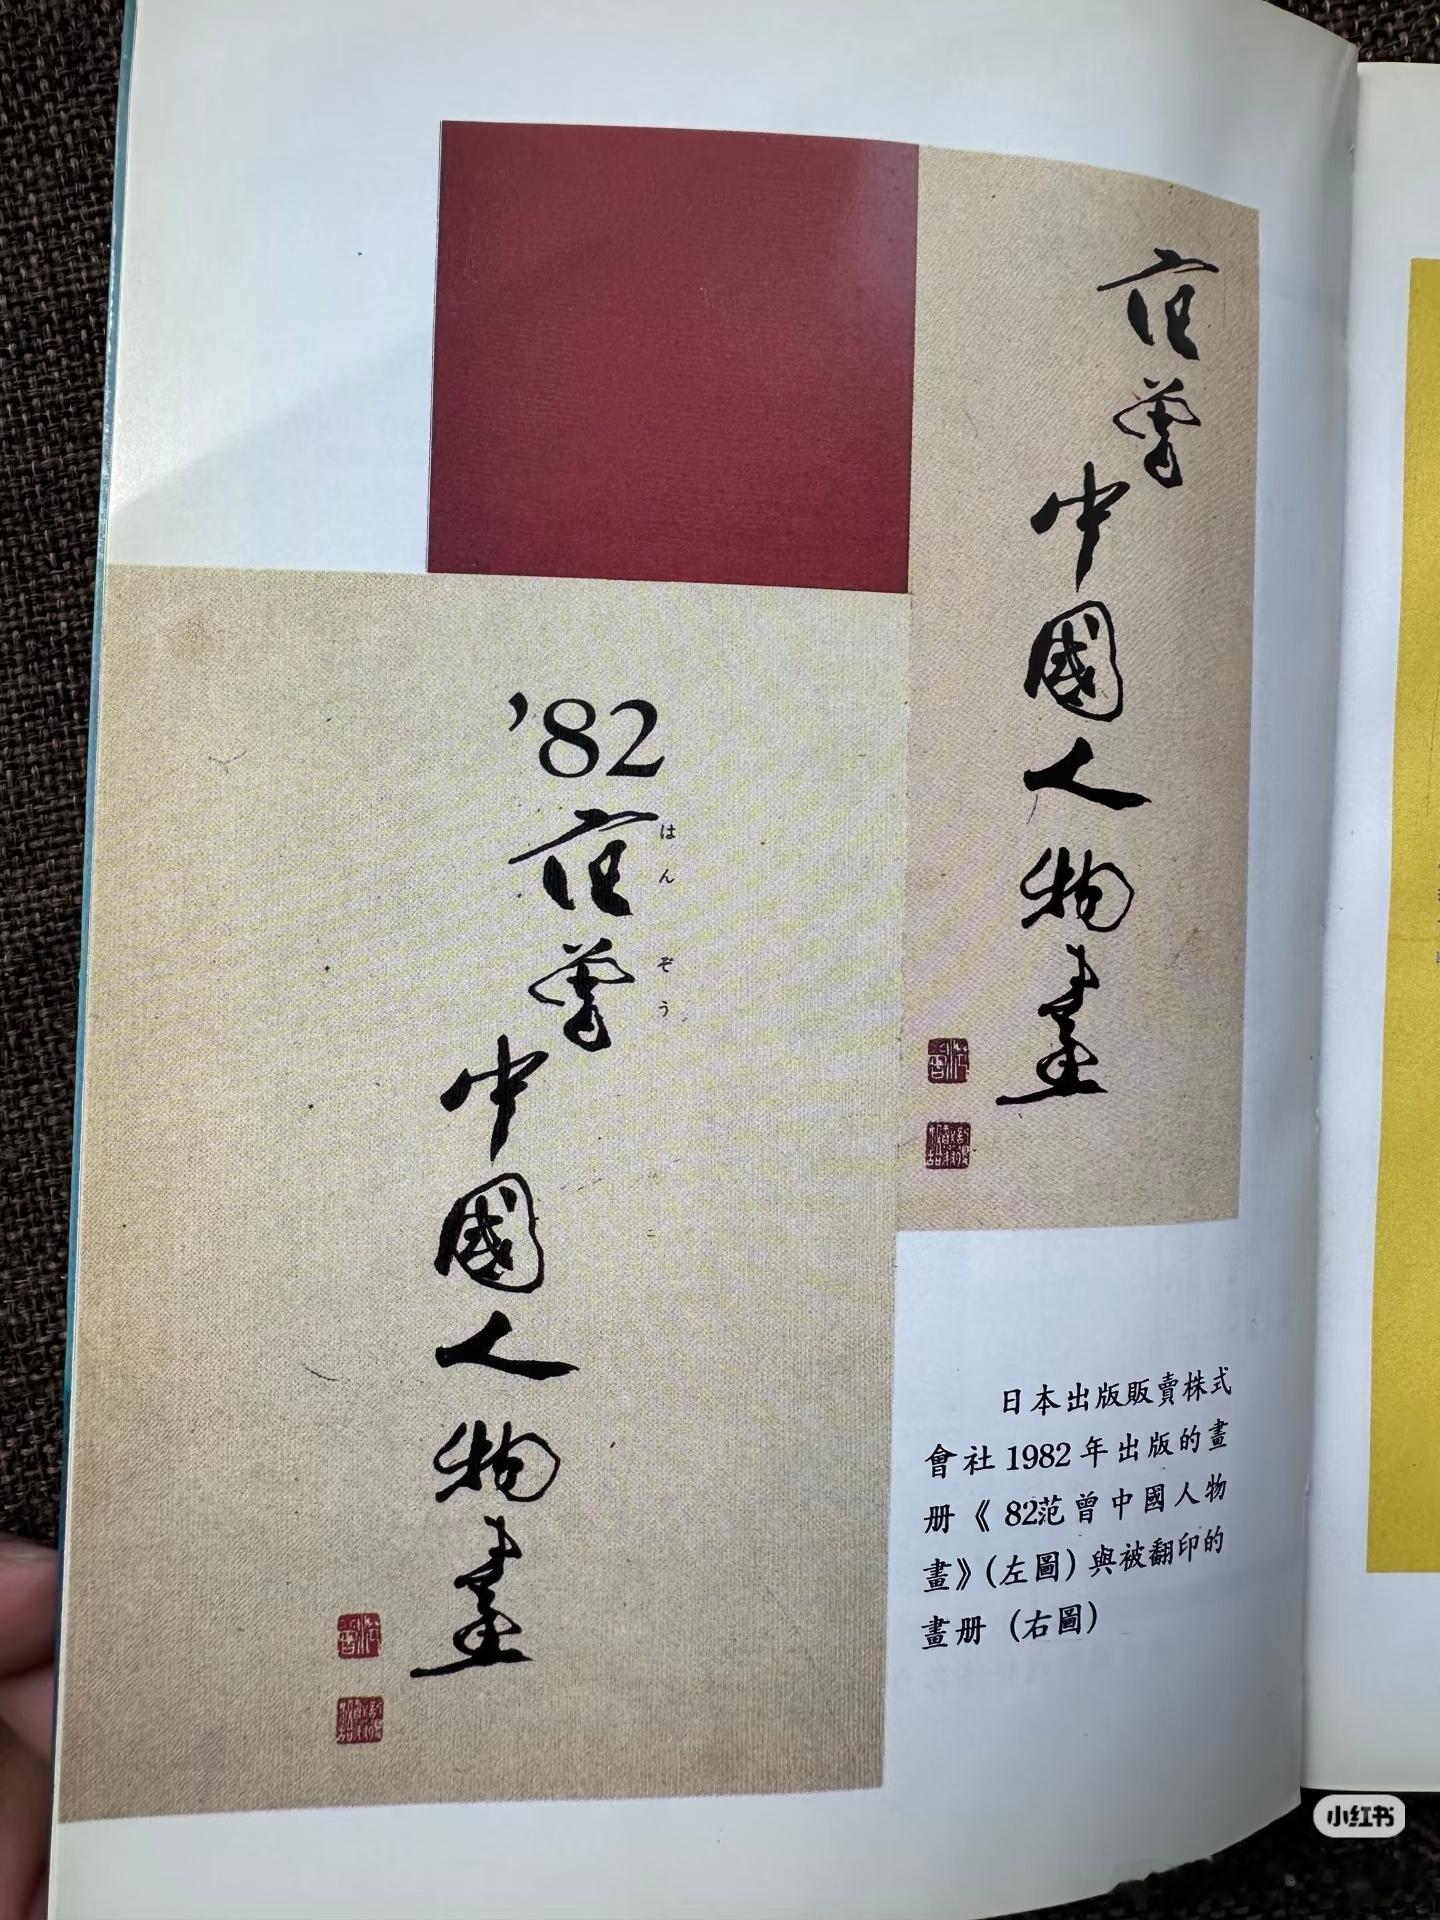 范曾中國人物畫
’82
范曾中國人物畫
はんぞう
日本出版販賣株式
會社1982年出版的畫
册《82范曾中國人物
畫》(左圖)與被翻印的
畫册(右圖)
小红书